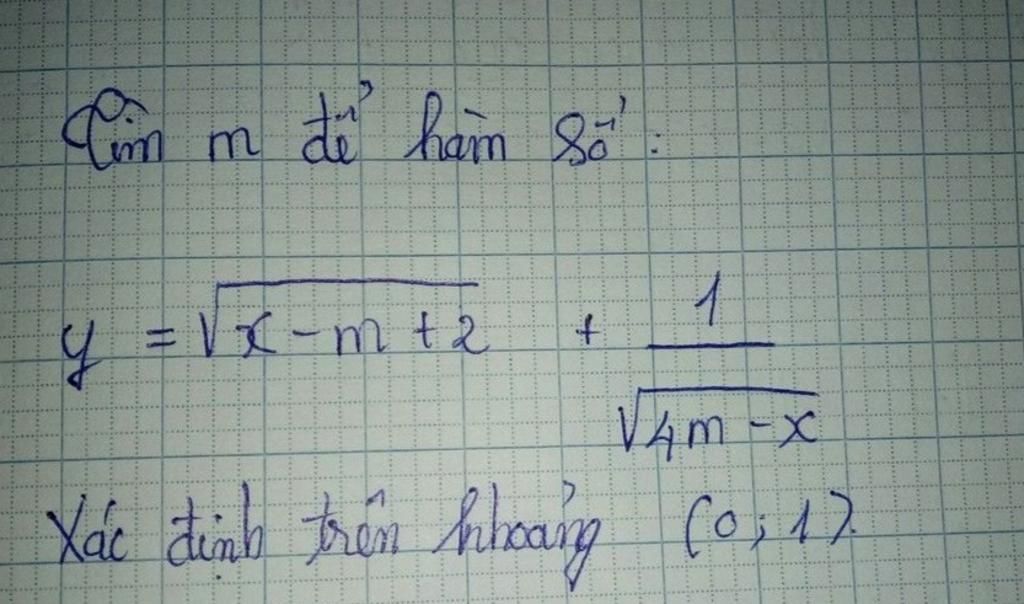 Tìm m để hàm số :
y = √(x - m + 2) + 1/√(4m - x)
Xác định trên khoảng (0; 1).